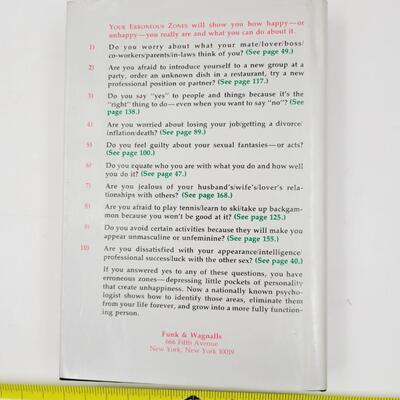 YOUR ERRONEOUS ZONES will show you how happy—or
unhappy—you really are and what you can do about it.
1) Do you worry about what your mate/lover/boss/
co-workers/parents/in-laws think of you? (See page 49.)
2) Are you afraid to introduce yourself to a new group at a
party, order an unknown dish in a restaurant, try a new
professional position or partner? (See page 117.)
3) Do you say "yes" to people and things because it's the
"right" thing to do—even when you want to say "no"? (See
page 138.)
4) Are you worried about losing your job/getting a divorce/
inflation/death? (See page 89.)
5) Do you feel guilty about your sexual fantasies—or acts?
(See page 100.)
6) Do you equate who you are with what you do and how well
you do it? (See page 47.)
7) Are you jealous of your husband's/wife's/lover's rela-
tionships with others? (See page 168.)
8) Are you afraid to play tennis/learn to ski/take up backgam-
mon because you won't be good at it? (See page 125.)
9) Do you avoid certain activities because they will make you
appear unmasculine or unfeminine? (See page 155.)
10) Are you dissatisfied with your appearance/intelligence/
professional success/luck with the other sex? (See page 40.)
If you answered yes to any of these questions, you have
erroneous zones—depressing little pockets of personality
that create unhappiness. Now a nationally known psycho-
logist shows how to identify those areas, eliminate them
from your life forever, and grow into a more fully function-
ing person.
Funk & Wagnalls
666 Fifth Avenue
New York, New York 10019